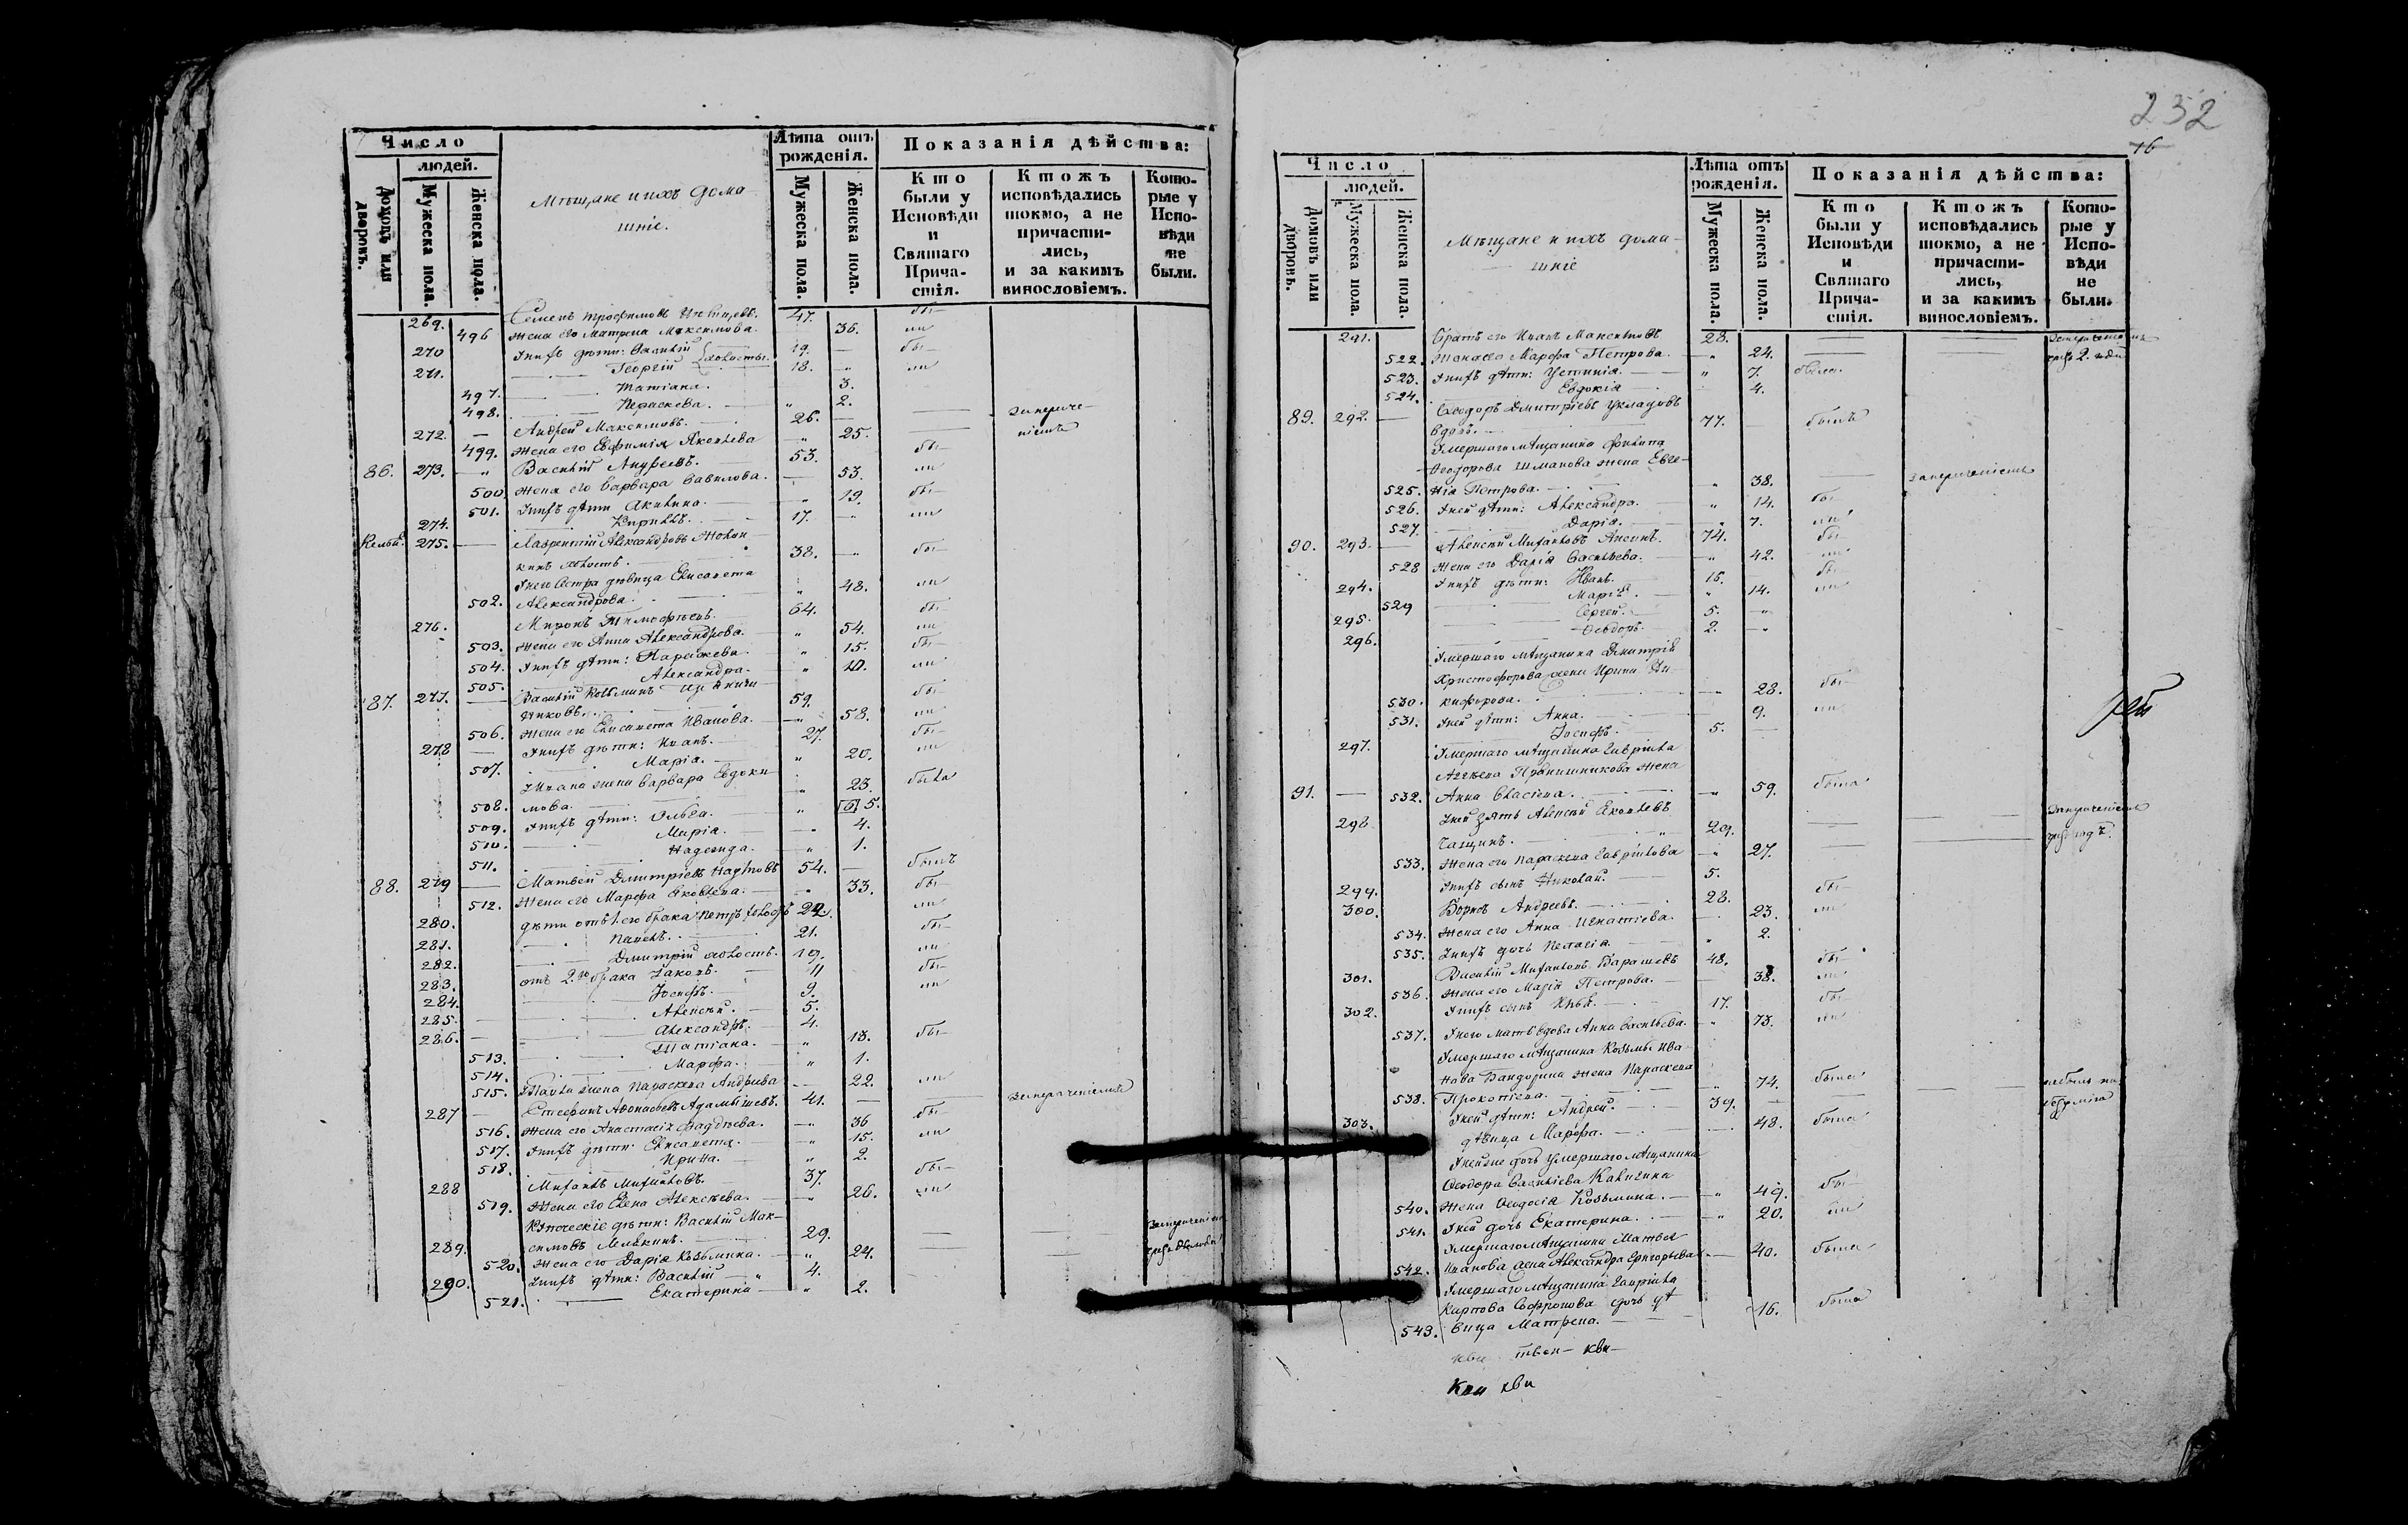 Число
людей.
Домовъ или дворовъ.
Мужеска пола.
Женска пола.
Мѣщане и ихъ дома
шніе.
Лѣта отъ рожденія.
Мужеска пола.
Женска пола.
Показанія дѣйства:
Кто были у Исповѣди и Святаго Причастія.
Ктожъ исповѣдались токмо, а не причастились, и за какимъ винословіемъ.
Которые у Исповѣди не были.
269. Семенъ Трофимовъ 47. бы-
496 Жена его Матрена Максимова. 36. ли
270 У нихъ дѣти: Василій холосты. 19. — бы-
271. Георгій 18. „ ли
497. Татіана. 3.
498. Параскева. „ 2.
272. — Андрей Максимовъ. 26. — —
499. Жена его Евфимія Яковлева „ 25. —
86. 273. — „ Василій Андреевъ. 53. бы-
500 Жена его Варвара Вавилова. — 53. ли
501. У нихъ дѣти Акилина. „ 19. бы-
274. Кириллъ. 17. — ли
275. — Лаврентій Александровъ
кинъ холостъ. 38. „ бы-
У него сестра дѣвица Елисавета
502. Александрова. „ 48. ли
276. Миронъ Тимофѣевъ. 64. бы-
503. Жена его Анна Александрова. „ 54. ли
504. У нихъ дѣти: Параскева. „ 15. бы-
505. Александра. „ 10. ли
87. 277. — Василій Козьминъ
59. бы-
506. Жена его Елисавета Иванова. — „ 58. ли
278 — У нихъ дѣти: Иванъ. 27. бы-
507. Марія. „ 20. ли
У Ивана жена Варвара Евдоки-
508. мова. „ 23. была
509. У нихъ дѣти: Ольга. „ 5.
510. Марія. „ 4.
511. Надежда. „ 1.
88. 279 — Матвей Дмитріевъ 54. — былъ
512. Жена его Марфа Яковлева. „ 33. бы-
280. дѣти отъ 1. его брака Петръ холостъ 22. ли
281. Павелъ. 21. бы-
282. Дмитрій холостъ. 19. ли
283. отъ 2.го брака Іаковъ. 11 бы-
284. Іосифъ. 9. ли
285. Алексѣй. 5.
286. Александръ. 4.
513. Татіана. „ 13. бы-
514. Марфа. „ 1.
515. У Павла жена Параскева Андреева — 22. ли
287 — Адамышевъ. 41. —
516. Жена его Анастасія Фаддѣева. „ 36 бы-
517. У нихъ дѣти: Елисавета. „ 15. ли
518. Ирина. „ 2.
288 Михаилъ Михайловъ. 37. бы-
519. Жена его Елена Алексѣева. „ 26. ли
Купеческіе дѣти: Василій Мак-
289. симовъ Мелякинъ. 29. —
520. Жена его Дарія Козьмина. „ 24.
290. У нихъ дѣти: Василій „ 4.
521. Екатерина „ 2.
232
16
Число
людей.
Домовъ или дворовъ.
Мужеска пола.
Женска пола.
Мѣщане и ихъ дома-
шніе
Лѣта отъ рожденія.
Мужеска пола.
Женска пола.
Показанія дѣйства:
Кто были у Исповѣди и Святаго Причастія.
Ктожъ исповѣдались токмо, а не причастились, и за какимъ винословіемъ.
Которые у Исповѣди не были.
291. Братъ его Иванъ Максимовъ 28. —
522. Жена его Марфа Петрова. „ 24. —
523. У нихъ дѣти: Устинія. „ 7. была.
524. Евдокія 4.
89. 292. — Ѳеодоръ Дмитріевъ
вдовъ. 77. былъ
Умершаго мѣщанина Филипа
Ѳеодорова Шманова жена Евге-
525. нія Петрова. „ 38. — за нерачѣніемъ
526. У ней дѣти: Александра. „ 14. бы-
527. Дарія. „ 7. ли
90. 293. — Алексѣй Михайловъ 74. бы-
528 Жена его Дарія Васильева. „ 42. ли
294. У нихъ дѣти: Иванъ. 15. бы-
529 Марія. „ 14. ли
295. Сергей. 5. „
296. Ѳеодоръ. 2. „
Умершаго мѣщанина Дмитрія
Христофорова жена Ирина Ни-
530. кифорова. — 28. бы-
531. У ней дѣти: Анна. 9. ли
297. Іосифъ. 5. —
Умершаго мѣщанина Гавріила
жена
91. — 532. Анна Власіева. „ 59. была
298 У ней зять Алексѣй Яковлевъ
29. —
533. Жена его Параскева Гавріилова „ 27.
299. У нихъ сынъ Николай. 5.
300. Борисъ Андреевъ. 28. бы-
534. Жена его Анна Игнатіева. 23. ли
535. У нихъ дочь Пелагія. „ 2.
301. Василій Михайловъ Барашевъ 48. бы-
536. Жена его Марія Петрова. — 38. ли
302. У нихъ сынъ Илья. 17. бы-
537. У него мать вдова Анна Васильева. „ 73. ли
Умершаго мѣщанина Козьмы Ива-
нова Бандорина жена Параскева
538. Прокопіева. „ 74. была
303. У ней дѣти: Андрей. 39. —
дѣвица Марфа. — 48. была
У ней же дочь умершаго мѣщанина
Ѳеодора Васильева Калигина
540. жена Ѳеодосія Козьмина. „ 49. бы-
541. У ней дочь Екатерина. „ 20. ли
Умершаго мѣщанина Матвея
542. Иванова жена Александра Григорьева — 40. была
Умершаго мѣщанина Гавріила
Карпова Софронова дочь дѣ-
543. вица Матрена. 16. была